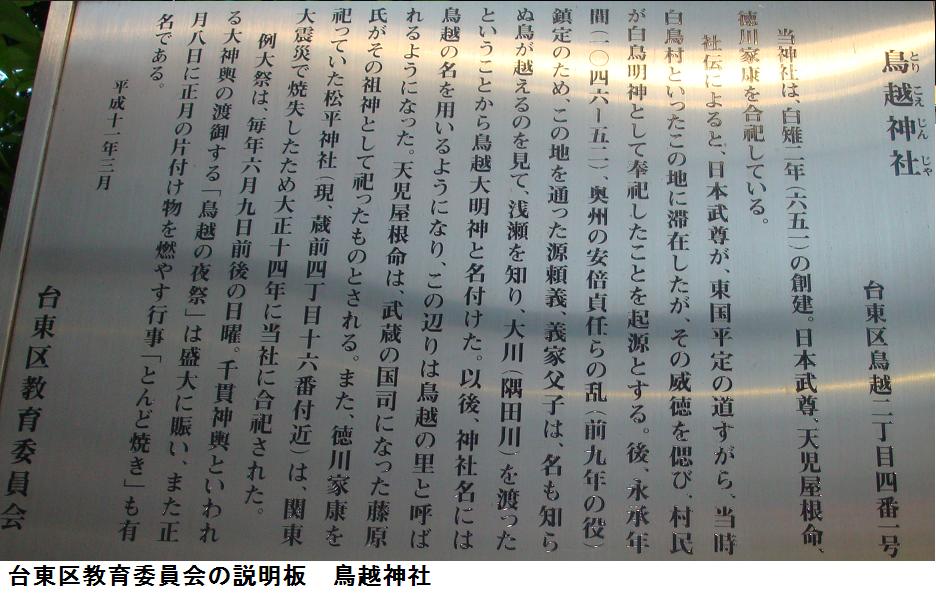 鳥越神社
とりこえじんじゃ
台東区鳥越二丁目四番一号
当神社は、白雉二年(六五一)の創建。日本武尊、天児屋根命、
徳川家康を合祀している。
社伝によると、日本武尊が、東国平定の道すがら、当時
白鳥村といったこの地に滞在したが、その威徳を偲び、村民
が白鳥明神として奉祀したことを起源とする。後、永承年
間(一〇四六ー五二)、奥州の安倍貞任らの乱(前九年の役)
鎮定のため、この地を通った源頼義、義家父子は、名も知ら
ぬ鳥が越えるのを見て、浅瀬を知り、大川(隅田川)を渡った
ということから鳥越大明神と名付けた。以後、神社名には
鳥越の名を用いるようになり、この辺りは鳥越の里と呼ば
れるようになった。天児屋根命は、武蔵の国司になった藤原
氏がその祖神として祀ったものとされる。また、徳川家康を
祀っていた松平神社(現、蔵前四丁目十六番付近)は、関東
大震災で焼失したため大正十四年に当社に合祀された。
例大祭は、毎年六月九日前後の日曜。千貫神輿といわれ
る大神輿の渡御する「鳥越の夜祭」は盛大に賑い、また正
月八日に正月の片付け物を燃やす行事「とんど焼き」も有
名である。
平成十一年三月
台東区教育委員会
台東区教育委員会の説明板 鳥越神社